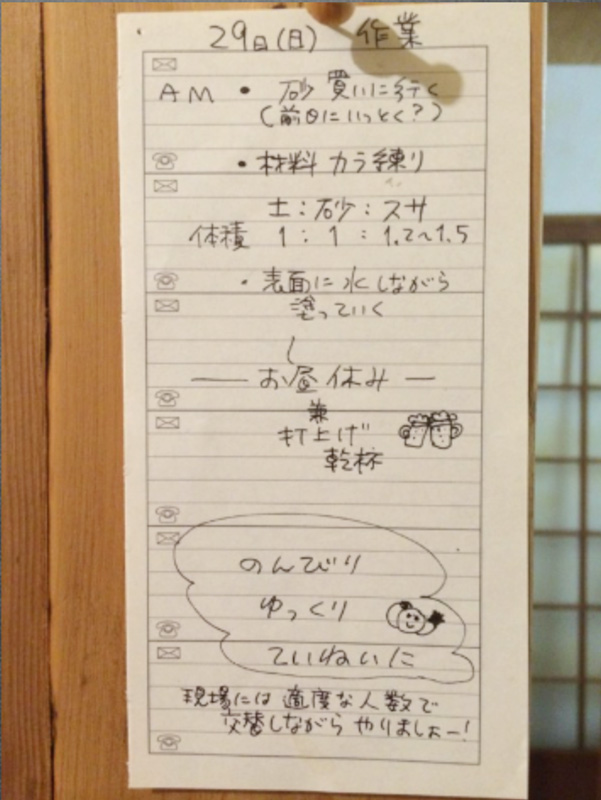 29日(日) 作業
AM ・ 砂 買いに行く
(前日にいっとく?)
・材料 カラ練り
土:砂:スサ
体積 1 : 1 : 1.2〜1.5
・表面に水しながら
塗っていく
── お昼休み ─
兼
打上げ
乾杯
のんびり
ゆっくり
ていねいに
現場には適度な人数で
交替しながら やりましょー!